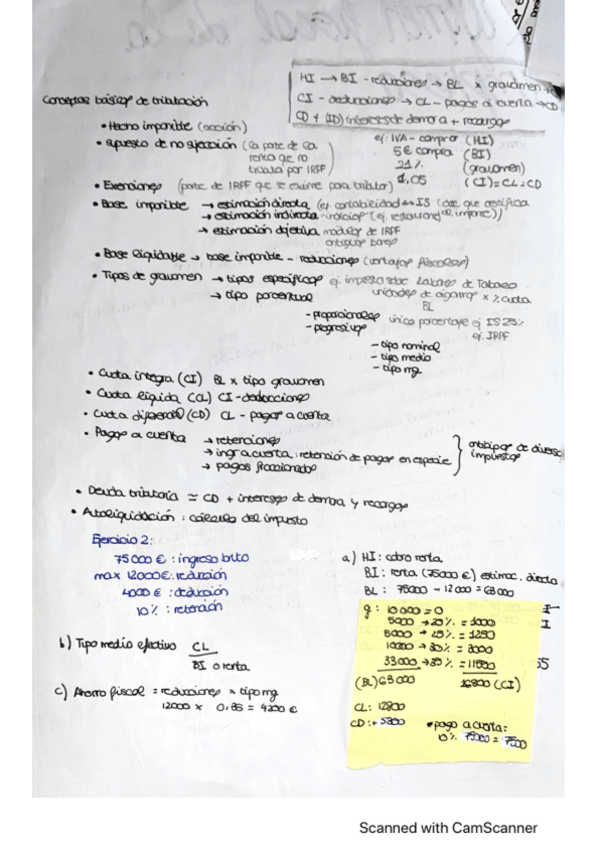 HI → BI - reducciones → BL x gravamen →
CI - deducciones → CL - pagos a cuenta → CD
CD + (ID) intereses de demora + recargos
Conceptos básicos de tributación
• Hecho imponible (acción)
ej: IVA - comprar (HI)
5€ compra (BI)
21% (gravamen)
1,05 (CI)=CL=CD
• Supuesto de no sujeción (la parte de la
renta que no
tributa por IRPF)
• Exenciones (parte de IRPF que se exime para tributar)
• Base imponible → estimación directa (ej contabilidad ↔ IS
→ estimación indirecta indicios
→ estimación objetiva modulos de IRPF
• Base liquidable → base imponible - reducciones (ventajas fiscales)
• Tipos de gravamen → tipos específicos ej. impuesto sobre Labores de Tabaco
unidades de cigarros x % cuota
→ tipo porcentual
BL
- proporcionales único porcentaje ej IS 25%
- progresivos ej. IRPF
- tipo nominal
- tipo medio
- tipo mg
• Cuota íntegra (CI) BL x tipo gravamen
• Cuota líquida (CL) CI - deducciones
• Cuota diferencial (CD) CL - pagos a cuenta
• Pagos a cuenta → retenciones
→ ingr a cuenta: retención de pagos en especie
→ pagos fraccionados
anticipos de diversos
impuestos
• Deuda tributaria = CD + intereses de demora y recargos
• Autoliquidación: cálculo del impuesto
Ejercicio 2:
75000 €: ingreso bruto
max 12000€: reducción
4000 €: deducción
10%: retención
a) HI: cobro renta
BI: renta (75000 €) estimac. directa
BL: 75000 - 12000 = 63000
g: 10000 = 0
5000 → 20% = 1000
5000 → 25% = 1250
10000 → 30% = 3000
33000 → 35% = 11550
(BL) 63000 16800 (CI)
CL: 12800
CD: + 5300
* pago a cuenta:
10% 75000 = 7500
b) Tipo medio efectivo CL
BI o renta
c) Ahorro fiscal = reducciones x tipo mg
12000 x 0,35 = 4200 €
Scanned with CamScanner